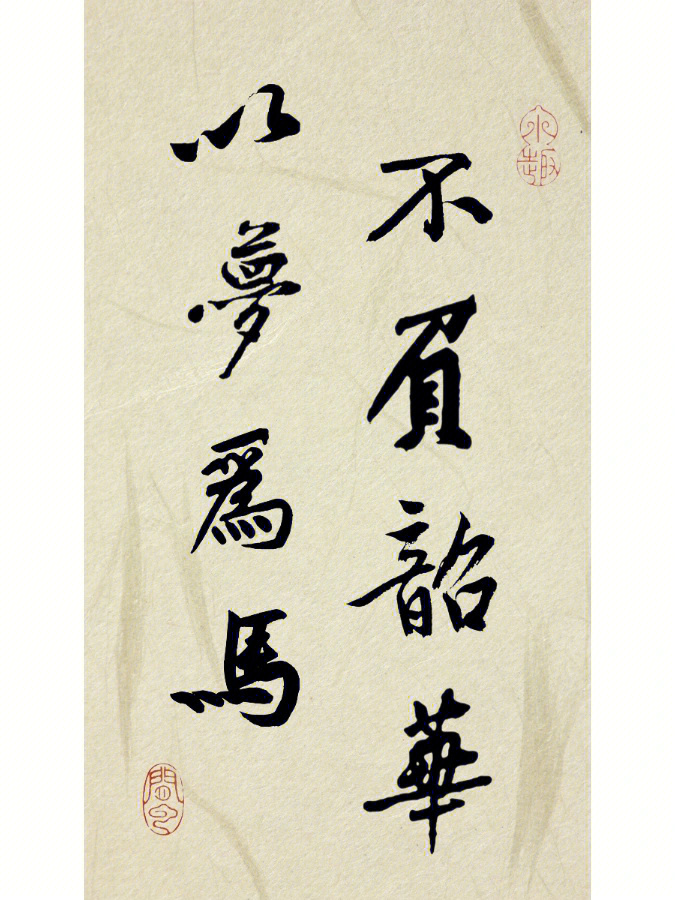 不負韶華
以夢爲馬